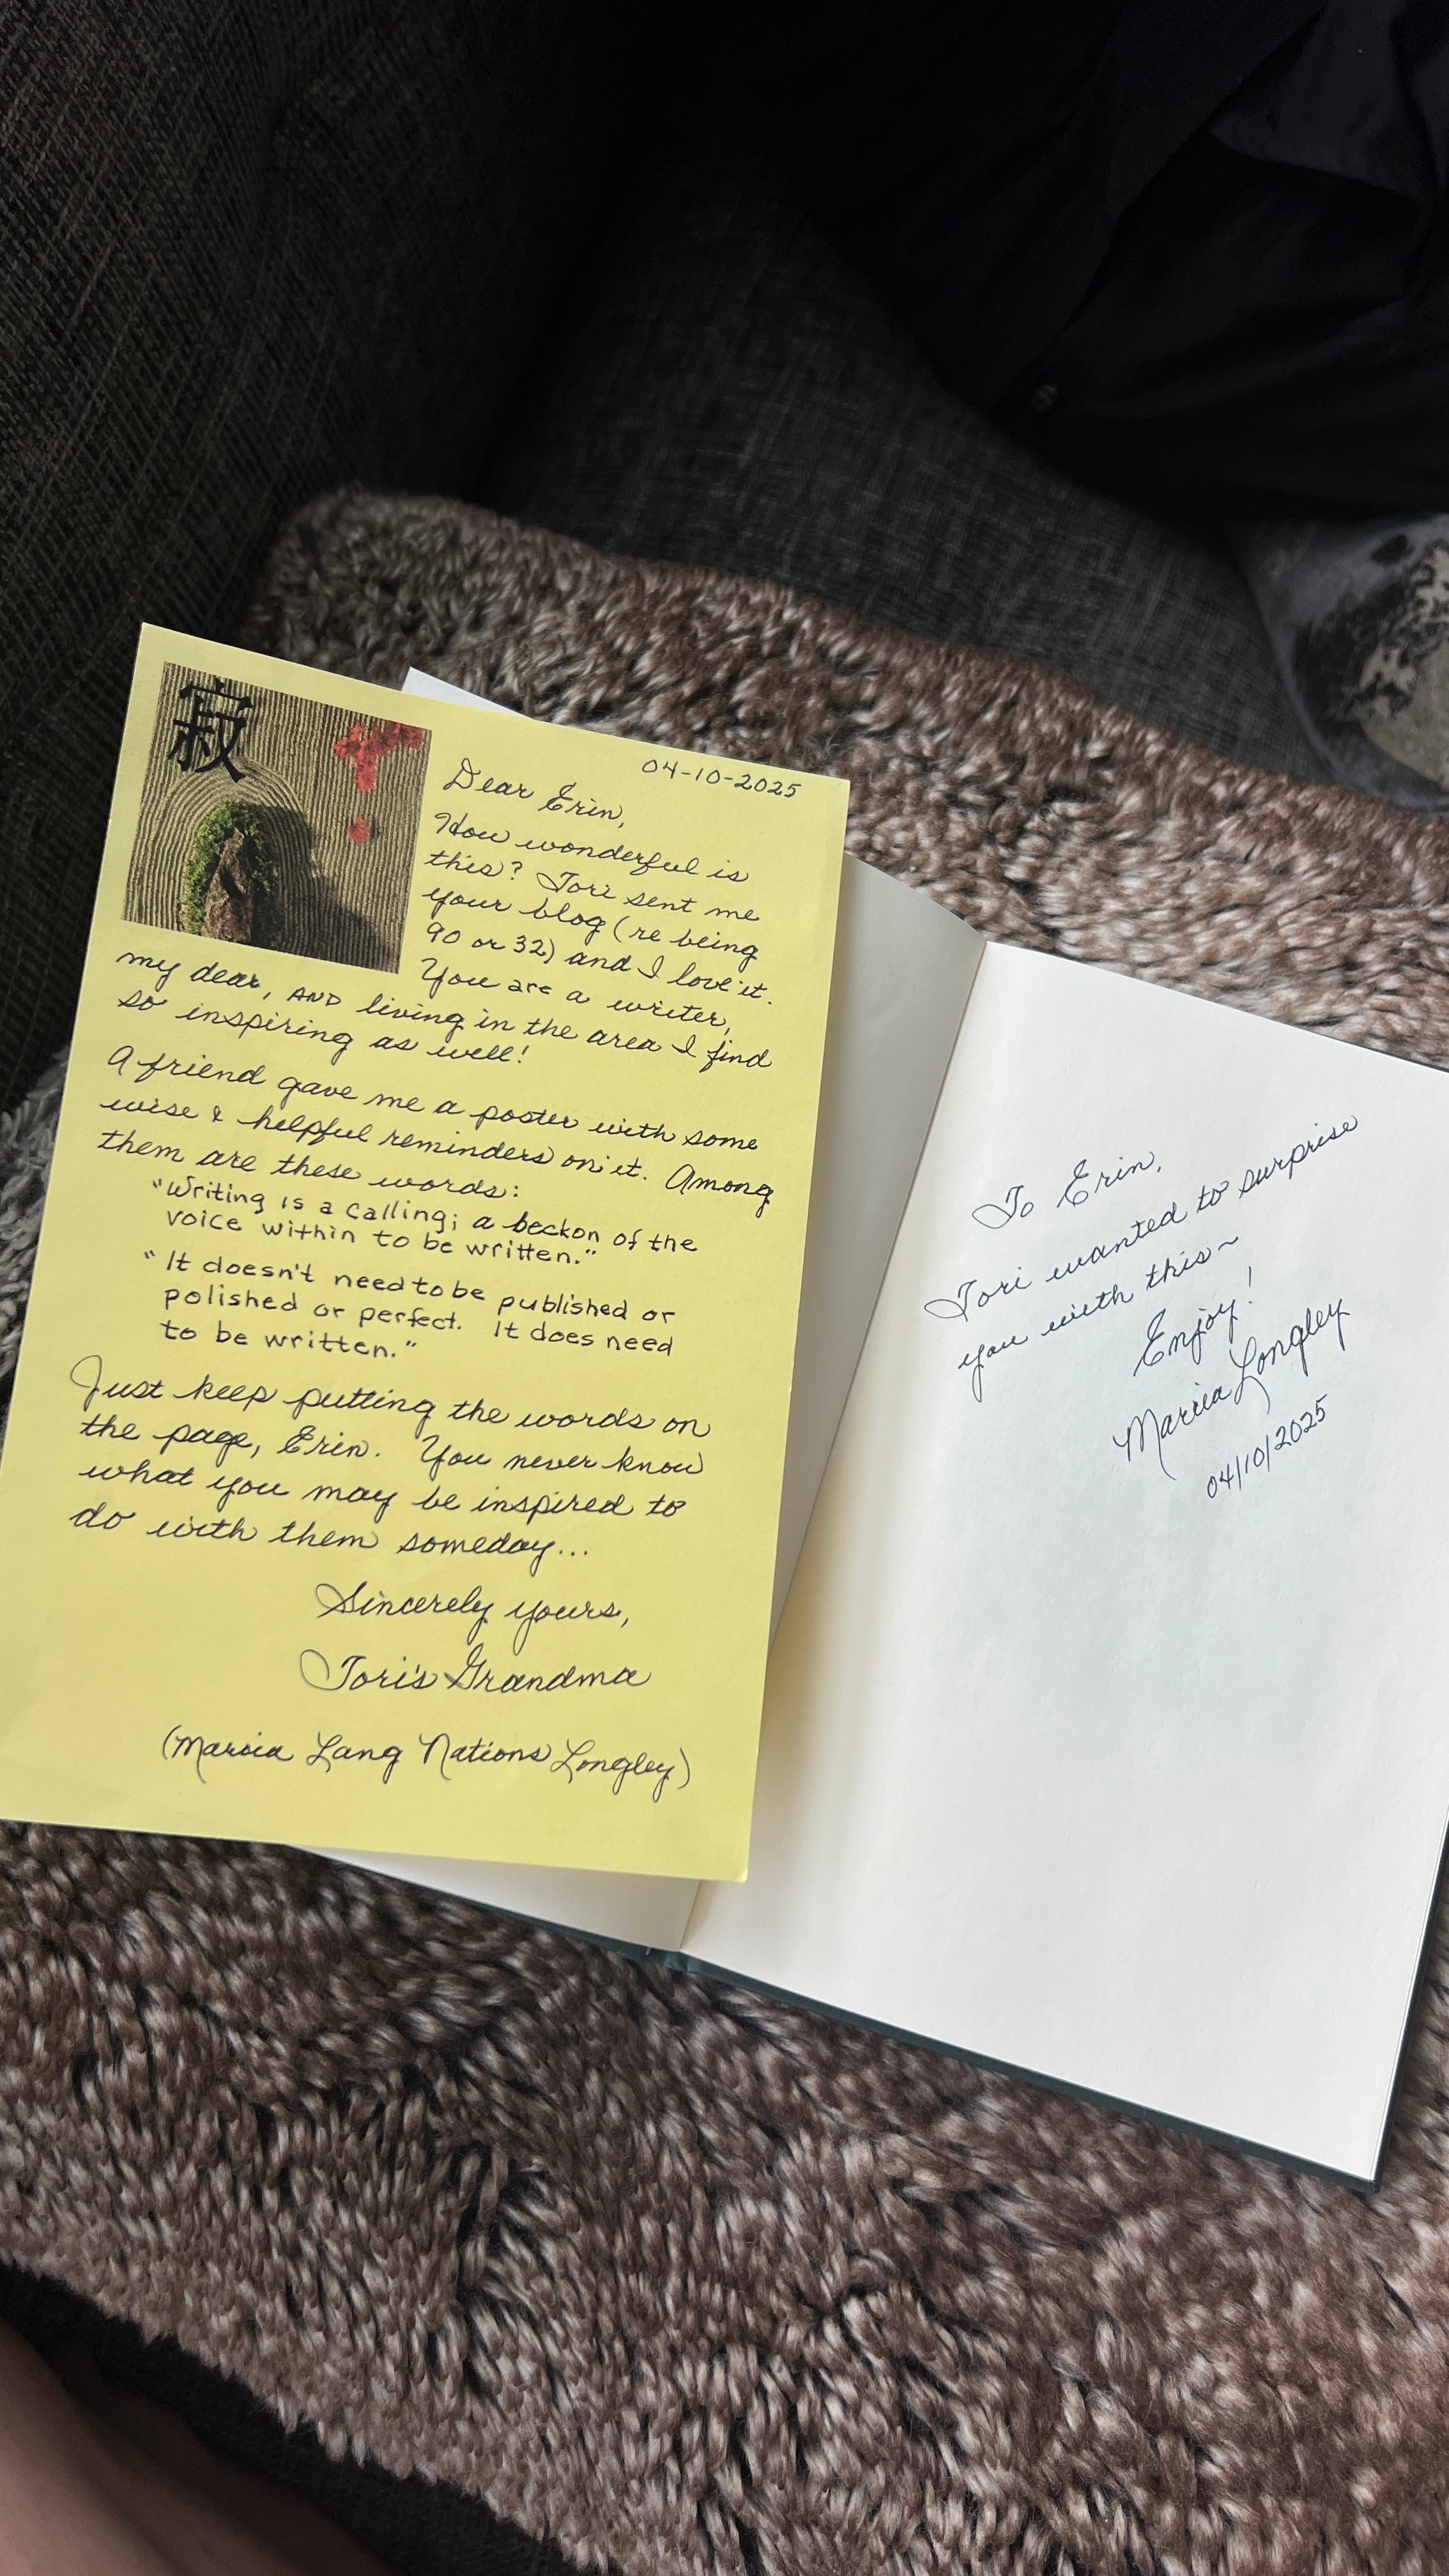 寂
04-10-2025
Dear Erin,
How wonderful is
this? Tori sent me
your blog (re being
90 or 32) and I love it.
You are a writer,
my dear, AND living in the area I find
so inspiring as well!
A friend gave me a poster with some
wise & helpful reminders on it. Among
them are these words:
"Writing is a calling; a beckon of the
voice within to be written."
"It doesn't need to be published or
polished or perfect. It does need
to be written."
Just keep putting the words on
the page, Erin. You never know
what you may be inspired to
do with them someday...
Sincerely yours,
Tori's Grandma
(Marcia Lang Nations Longley)
To Erin,
Tori wanted to surprise
you with this~
Enjoy!
Marcia Longley
04/10/2025